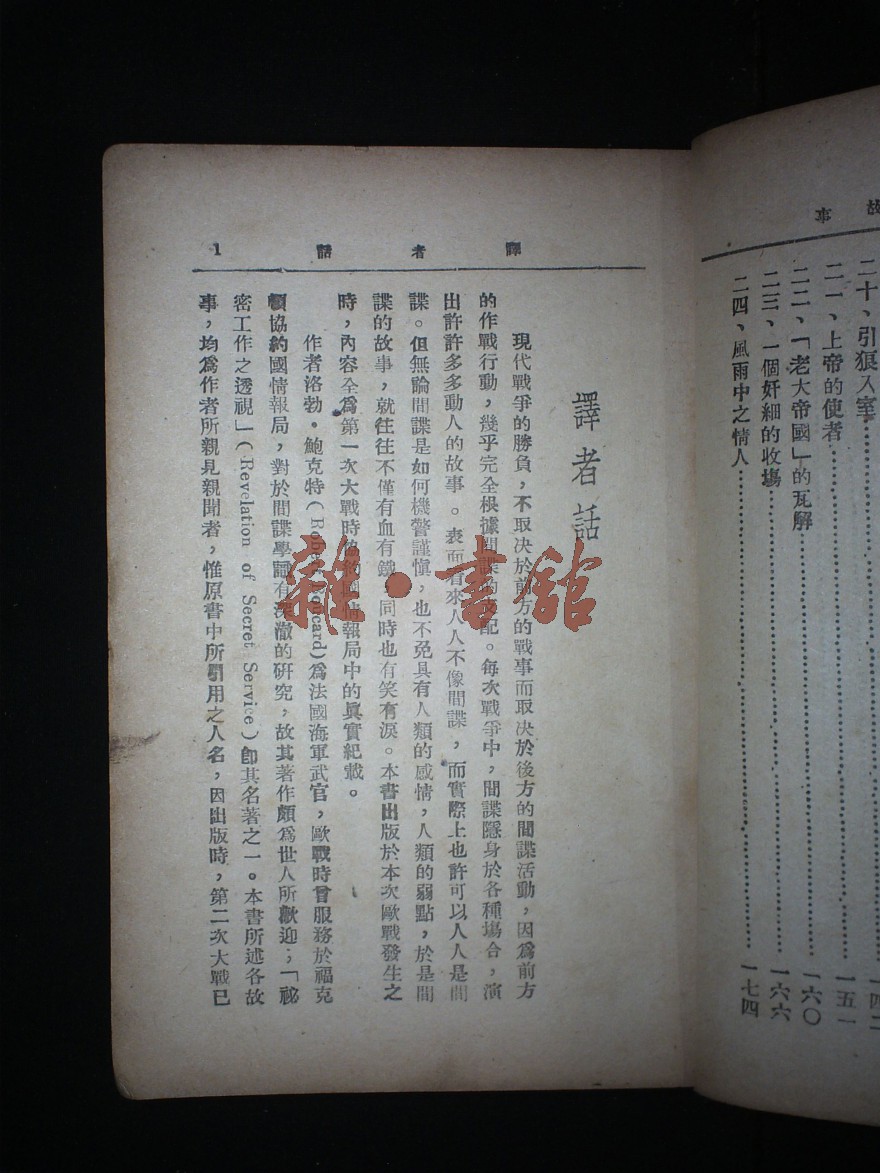 故事
二十、引狼入室……一四二
二一、上帝的使者……一五一
二二、「老大帝國」的瓦解……一六〇
二三、一個奸細的收場……一六六
二四、風雨中之情人……一七四
譯者話 1
譯者話
現代戰爭的勝負，不取決於前方的戰事而取決於後方的間諜活動，因爲前方
的作戰行動，幾乎完全根據間諜的支配。每次戰爭中，間諜隱身於各種場合，演
出許許多多動人的故事。表面看來人人不像間諜，而實際上也許可以人人是間
諜。但無論間諜是如何機警謹愼，也不免具有人類的感情，人類的弱點，於是間
諜的故事，就往往不僅有血有鐵，同時也有笑有淚。本書出版於本次歐戰發生之
時，內容全爲第一次大戰時協約國情報局中的眞實紀載。
作者洛勃。鮑克特（Robert Boucard）爲法國海軍武官，歐戰時曾服務於福克
頓協約國情報局，對於間諜學識有深澈的研究，故其著作頗爲世人所歡迎；「祕
密工作之透視」（Revelation of Secret Service）卽其名著之一。本書所述各故
事，均爲作者所親見親聞者，惟原書中所引用之人名，因出版時，第二次大戰已
雜·書館